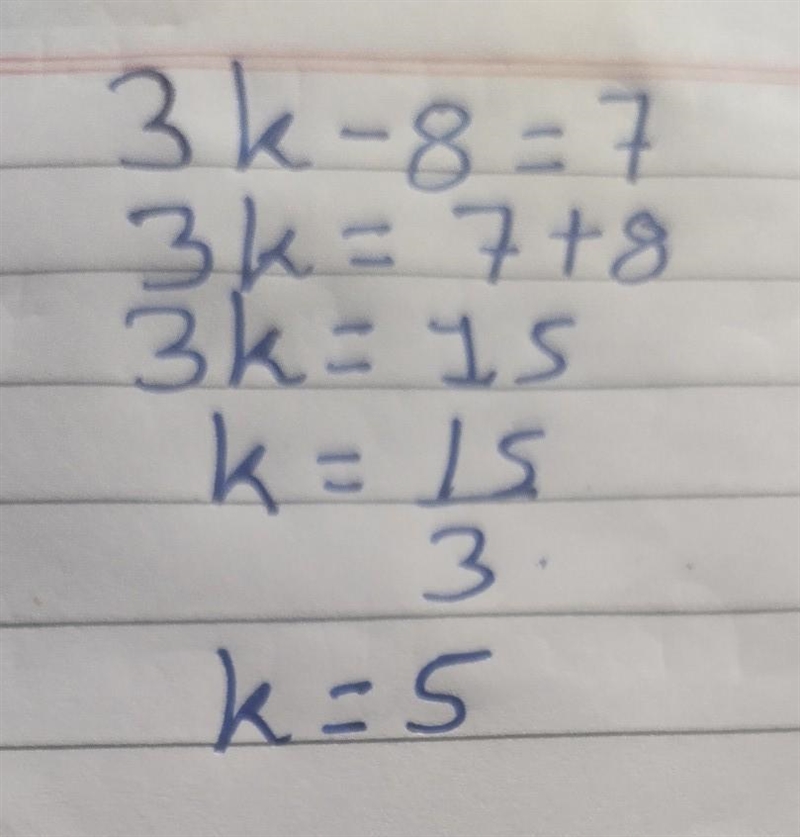 3k - 8 = 7
3k = 7 + 8
3k = 15
k = 15/3
k = 5